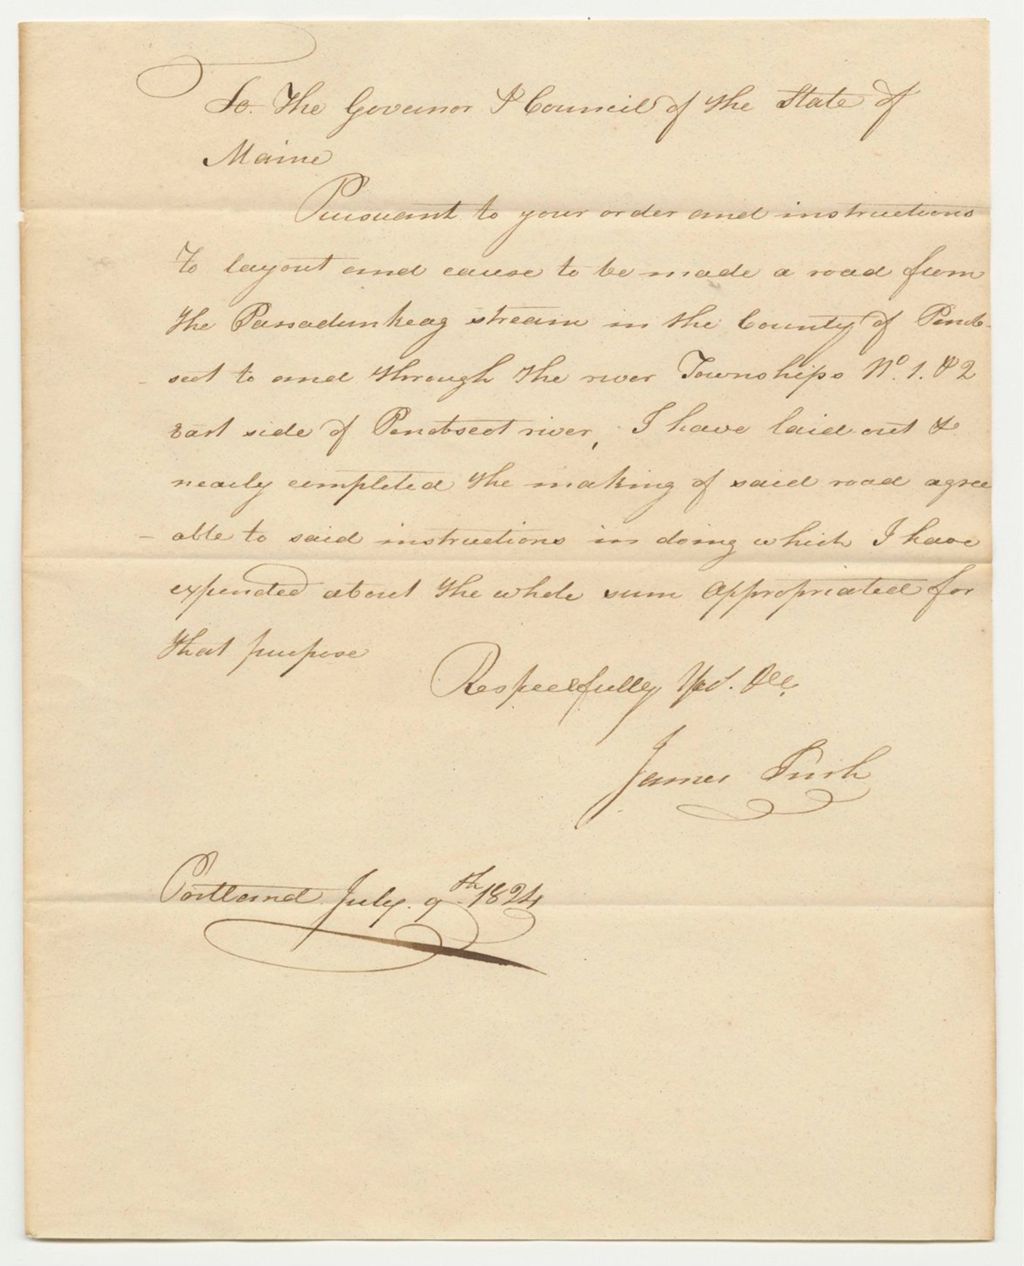 To. The Governor & Council of the State of
Maine
Pursuant to your order and instructions
To layout and cause to be made a road from
the Passadunkeag stream in the County of Penob-
scot to and through the river Townships No. 1. & 2
East side of Penobscot river, I have laid out &
nearly completed the making of said road agree
-able to said instructions in doing which I have
expended about the whole sum appropriated for
that purpose
Respectfully
James Irish
Portland July. 9th 1824